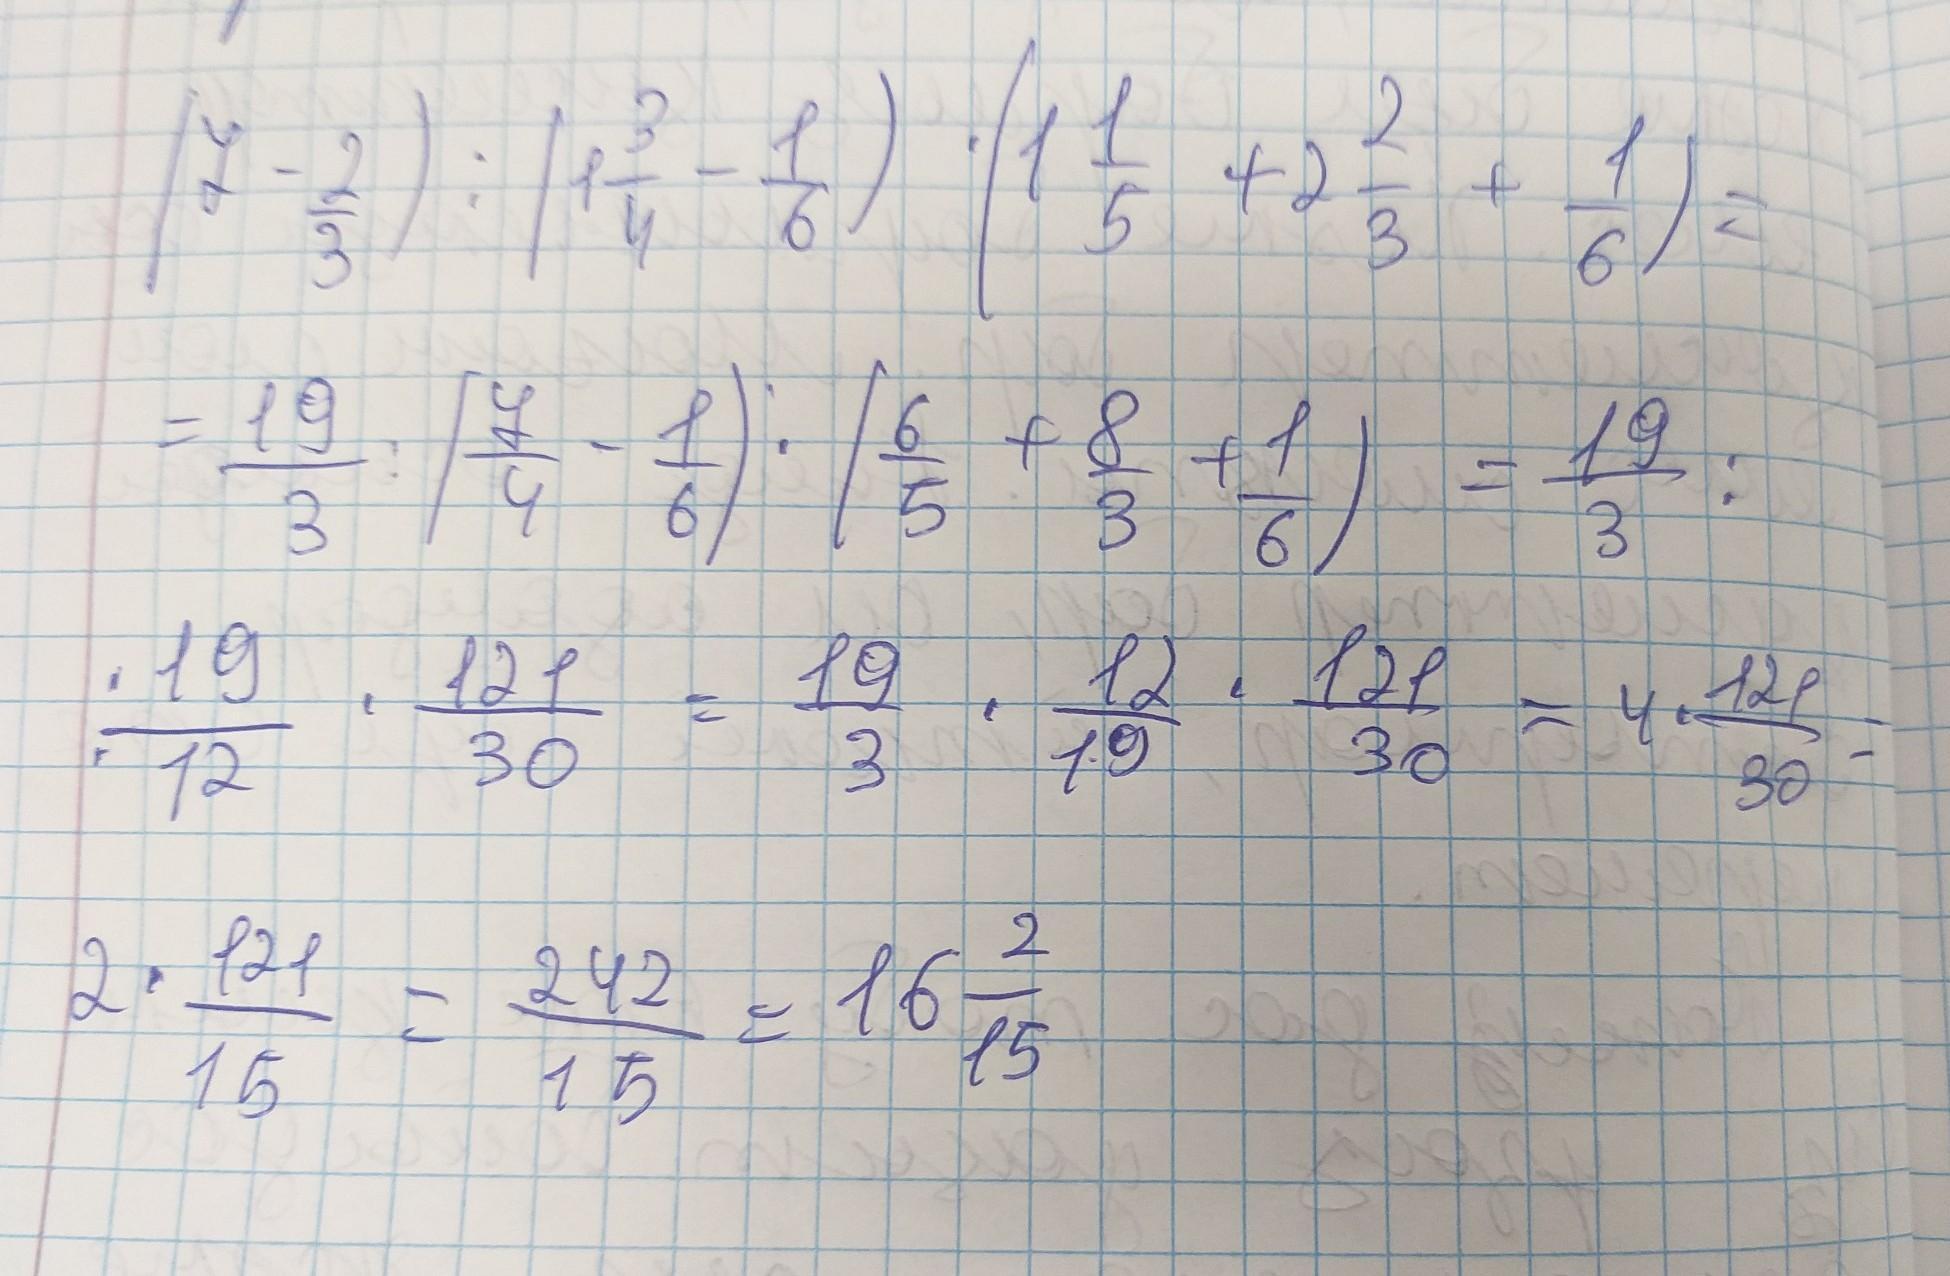 (7 - 2/3) : (1 3/4 - 1/6) · (1 1/5 + 2 2/3 + 1/6) =
= 19/3 : (7/4 - 1/6) · (6/5 + 8/3 + 1/6) = 19/3 :
: 19/12 · 121/30 = 19/3 · 12/19 · 121/30 = 4 · 121/30 =
2 · 121/15 = 242/15 = 16 2/15